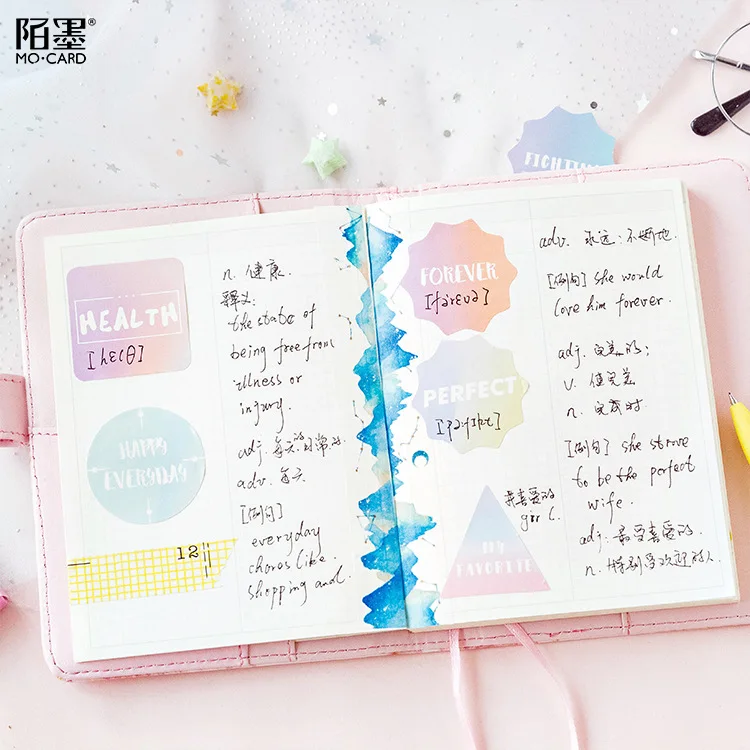 陌墨®
MO·CARD
FIGHTING
HEALTH
[helθ]
n. 健康.
釋义:
the state of
being free from
illness or
injury.
HAPPY
EVERYDAY
adj. 每天的日常的
adv. 每天
[例句]
everyday
chores like
shopping and
12
FOREVER
[fərevə]
adv. 永远:不断地.
[例句] she would
love him forever.
PERFECT
adj. 完美的;
v. 使完美
n. 完成时
[例句] she strove
to be the perfect
wife.
MY
FAVORITE
adj. 最受喜爱的.
n. 特别受欢迎的人